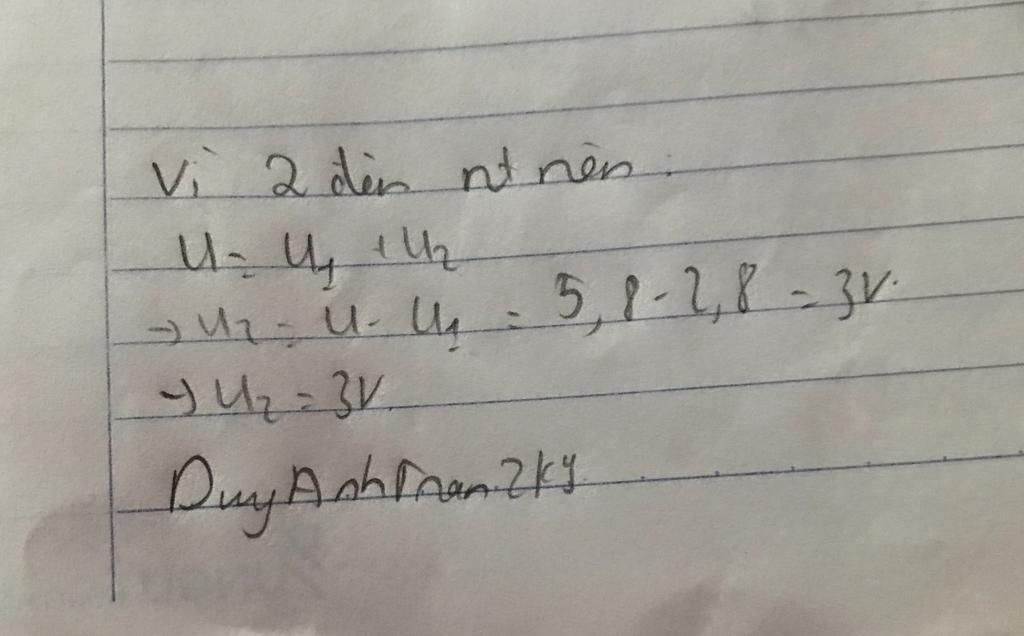 Vì 2 đèn nt nên :
U = U1 + U2
→ U2 = U - U1 = 5,8 - 2,8 = 3V.
→ U2 = 3V
DuyAnhTran2k9